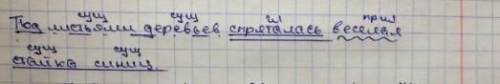 сущ сущ гл прил
Под листьями деревьев спряталась веселая
сущ сущ
стайка синиц.